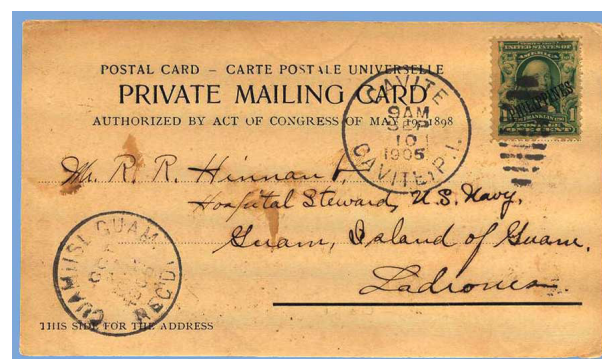 UNITED STATES OF
POSTAL CARD – CARTE POSTALE UNIVERSELLE
PRIVATE MAILING CARD
AUTHORIZED BY ACT OF CONGRESS OF MAY 19, 1898
CAVITE
9 AM
SEP
10
1905
CAVITE, P.I.
PHILIPPINES
FRANKLIN
POSTAGE
1 ONE CENT 1
Mr. R. R. Hinnant,
Hospital Steward, U.S. Navy,
Guam, Island of Guam,
Ladrones.
GUAM ISL GUAM
REC'D
THIS SIDE FOR THE ADDRESS